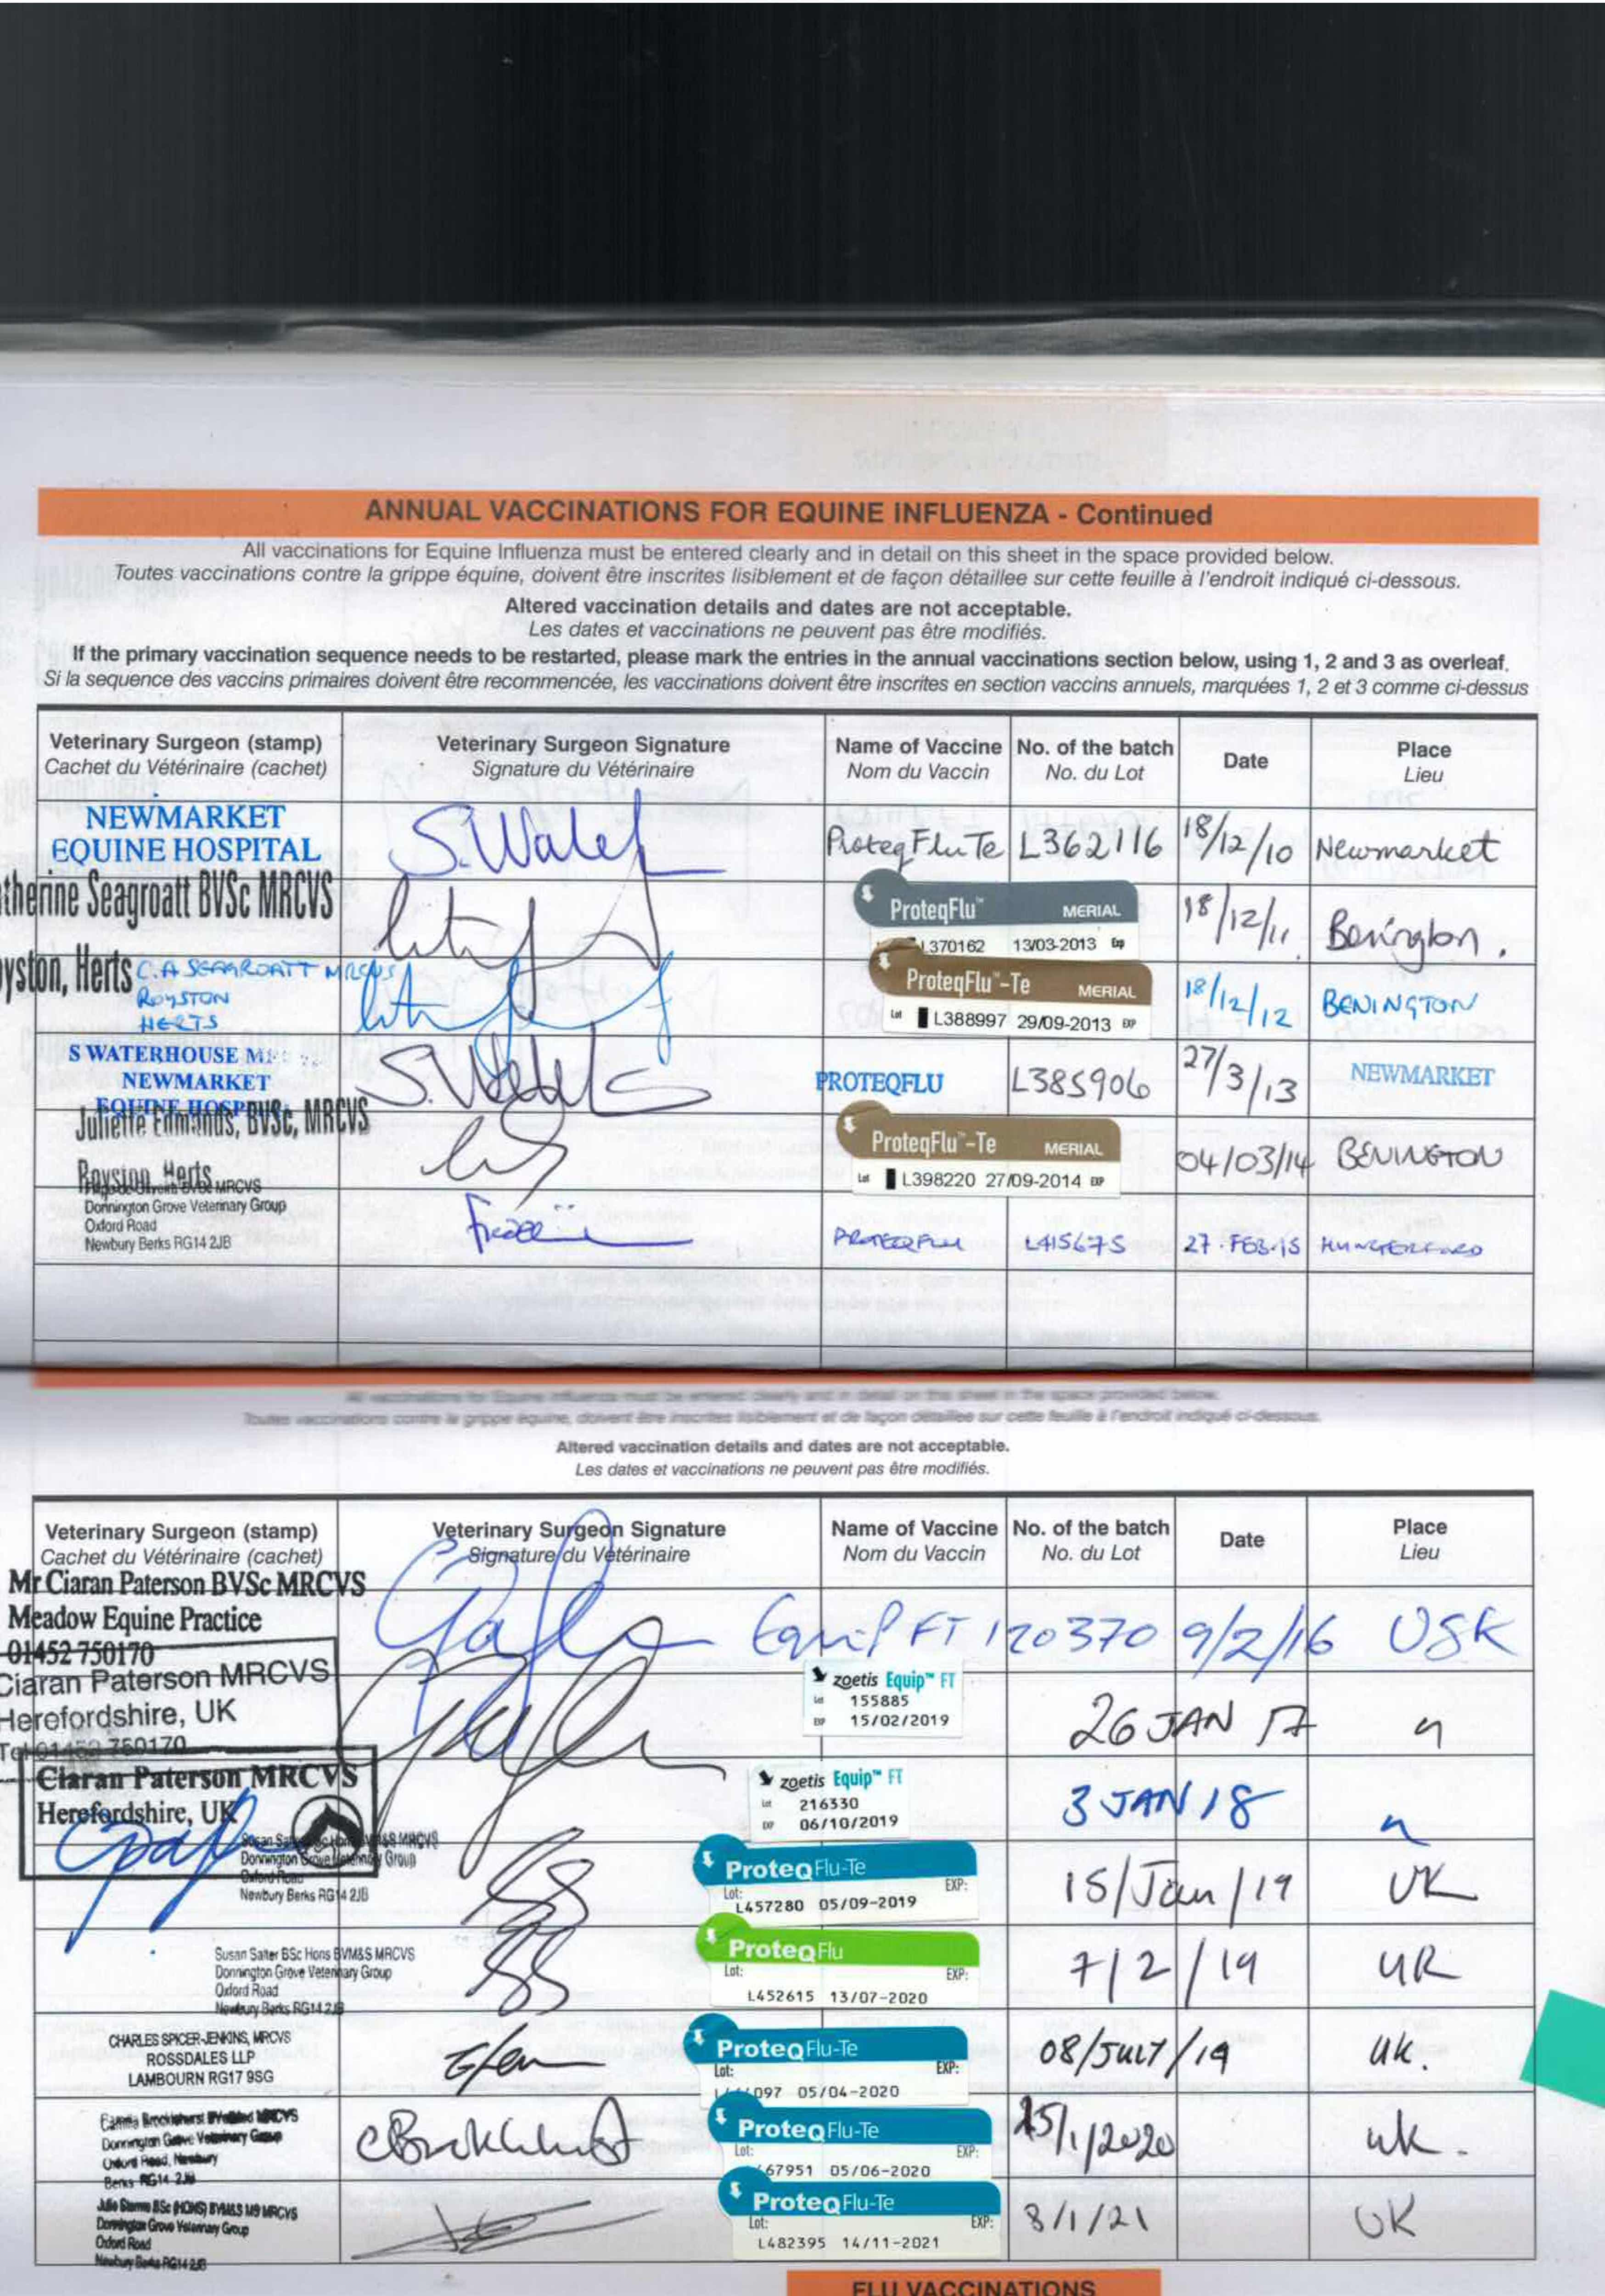 ANNUAL VACCINATIONS FOR EQUINE INFLUENZA - Continued
All vaccinations for Equine Influenza must be entered clearly and in detail on this sheet in the space provided below.
Toutes vaccinations contre la grippe équine, doivent être inscrites lisiblement et de façon détaillee sur cette feuille à l'endroit indiqué ci-dessous.
Altered vaccination details and dates are not acceptable.
Les dates et vaccinations ne peuvent pas être modifiés.
If the primary vaccination sequence needs to be restarted, please mark the entries in the annual vaccinations section below, using 1, 2 and 3 as overleaf.
Si la sequence des vaccins primaires doivent être recommencée, les vaccinations doivent être inscrites en section vaccins annuels, marquées 1, 2 et 3 comme ci-dessus
Veterinary Surgeon (stamp) Veterinary Surgeon Signature Name of Vaccine No. of the batch Date Place
Cachet du Vétérinaire (cachet) Signature du Vétérinaire Nom du Vaccin No. du Lot Lieu
NEWMARKET
EQUINE HOSPITAL ProteqFluTe L362116 18/12/10 Newmarket
therine Seagroatt BVSc MRCVS ProteqFlu™ MERIAL 18/12/11 Benington.
L370162 13/03-2013 Exp
yston, Herts C.A SEAGROATT MRCVS
ROYSTON
HERTS
ProteqFlu™-Te MERIAL 18/12/12 BENINGTON
Lot L388997 29/09-2013 EXP
S WATERHOUSE
NEWMARKET
EQUINE HOSP
PROTEQFLU L385906 27/3/13 NEWMARKET
Juliette Edmands, BVSc, MRCVS
Royston, Herts
ProteqFlu™-Te MERIAL 04/03/14 BENINGTON
Lot L398220 27/09-2014 EXP
MRCVS
Donnington Grove Veterinary Group
Oxford Road
Newbury Berks RG14 2JB
PROTEQFLU L415675 27.FEB.15 HUNGERFORD
All vaccinations for Equine Influenza must be entered clearly and in detail on this sheet in the space provided below.
Toutes vaccinations contre la grippe équine, doivent être inscrites lisiblement et de façon détaillee sur cette feuille à l'endroit indiqué ci-dessous.
Altered vaccination details and dates are not acceptable.
Les dates et vaccinations ne peuvent pas être modifiés.
Veterinary Surgeon (stamp) Veterinary Surgeon Signature Name of Vaccine No. of the batch Date Place
Cachet du Vétérinaire (cachet) Signature du Vétérinaire Nom du Vaccin No. du Lot Lieu
Mr Ciaran Paterson BVSc MRCVS
Meadow Equine Practice
01452 750170
Equip FT 120370 9/2/16 USK
Ciaran Paterson MRCVS
Herefordshire, UK
Tel 01452 750170
zoetis Equip™ FT
Lot 155885
EXP 15/02/2019
26 JAN 17 "
Ciaran Paterson MRCVS
Herefordshire, UK
zoetis Equip™ FT
Lot 216330
EXP 06/10/2019
3 JAN 18 "
Donnington Grove Veterinary Group
Oxford Road
Newbury Berks RG14 2JB
ProteqFlu-Te
Lot: EXP:
L457280 05/09-2019
15/Jan/19 UK
Susan Salter BSc Hons BVM&S MRCVS
Donnington Grove Veterinary Group
Oxford Road
Newbury Berks RG14 2JB
ProteqFlu
Lot: EXP:
L452615 13/07-2020
7/2/19 UK
CHARLES SPICER-JENKINS, MRCVS
ROSSDALES LLP
LAMBOURN RG17 9SG
ProteqFlu-Te
Lot: EXP:
097 05/04-2020
08/JULY/19 UK.
Donnington Grove Veterinary Group
Oxford Road, Newbury
Berks RG14 2JB
ProteqFlu-Te
Lot: EXP:
67951 05/06-2020
15/1/2020 uk.
Donnington Grove Veterinary Group
Oxford Road
Newbury Berks RG14 2JB
ProteqFlu-Te
Lot: EXP:
L482395 14/11-2021
8/1/21 UK
FLU VACCINATIONS